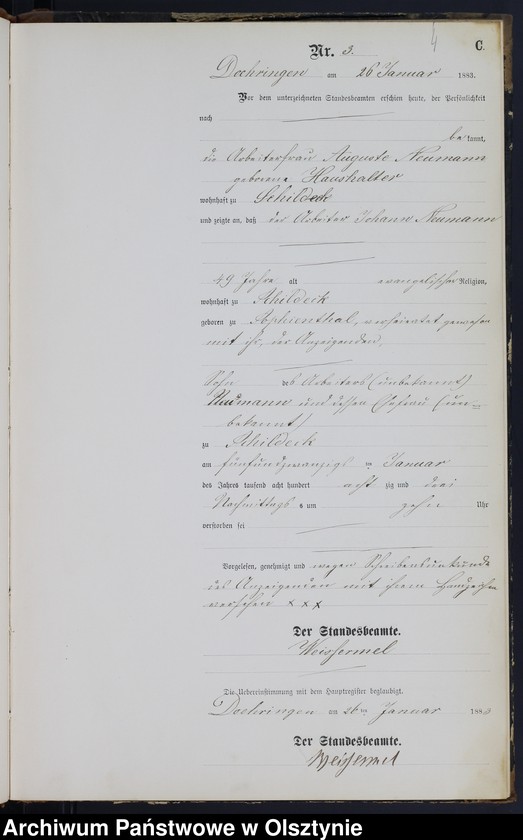 4
C.
Nr. 3.
Doehringen am 26 Januar 1883.
Vor dem unterzeichneten Standesbeamten erschien heute, der Persönlichkeit
nach
bekannt,
die Arbeiterfrau Auguste Neumann
geborene Haushalter
wohnhaft zu Schildeck
und zeigte an, daß der Arbeiter Johann Neumann
49 Jahre alt evangelischer Religion,
wohnhaft zu Schildeck
geboren zu Sophienthal, verheirathet gewesen
mit ihr, der Anzeigenden,
Sohn des Arbeiters (unbekannt)
Neumann und dessen Ehefrau (un=
bekannt)
zu Schildeck
am fünfundzwanzigsten Januar
des Jahres tausend acht hundert achtzig und drei
Nachmittags um zehn Uhr
verstorben sei
Vorgelesen, genehmigt und wegen Schreibensunkunde
der Anzeigenden mit ihrem Handzeichen
versehen x x x
Der Standesbeamte.
Weissermel
Die Uebereinstimmung mit dem Hauptregister beglaubigt.
Doehringen am 26ten Januar 1883
Der Standesbeamte.
Weissermel
Archiwum Państwowe w Olsztynie